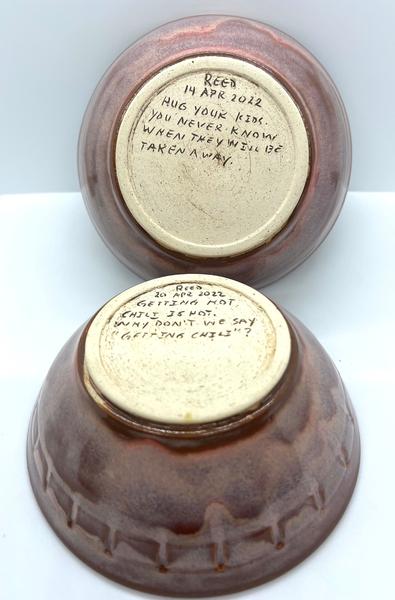 REED
14 APR 2022
HUG YOUR KIDS.
YOU NEVER KNOW
WHEN THEY WILL BE
TAKEN AWAY.
REED
20 APR 2022
GETTING HOT.
CHILI IS HOT.
WHY DON'T WE SAY
"GETTING CHILI"?